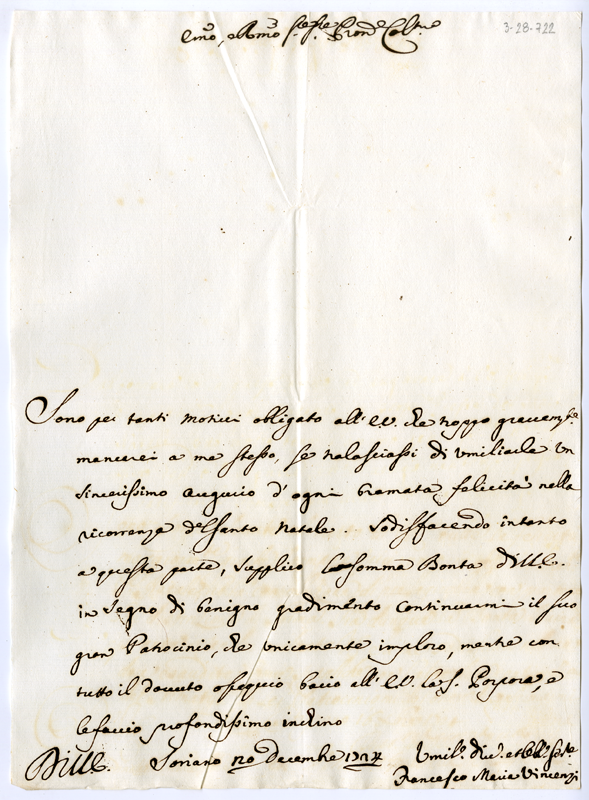 3-28-722
Emo, e Rmo Sige Sige Pron Col
Sono per tanti motivi obligato all' E.V. che troppo gravem.te
mancarei a me stesso, se tralasciassi di umiliarle un
sincerissimo augurio d'ogni bramata felicità nella
ricorrenza del Santo Natale. Sodisfacendo intanto
a questa parte, supplico la somma Bontà di V.E.
in segno di benigno gradimento continuarmi il suo
gran Patrocinio, che unicamente imploro, mentre con
tutto il dovuto ossequio bacio all' E.V. la S. Porpora, e
le faccio profondissimo inchino
Di V.E. Soriano 20 Decembre 1724 Umil. div. et obl.
Francesco Maria Vincenzi